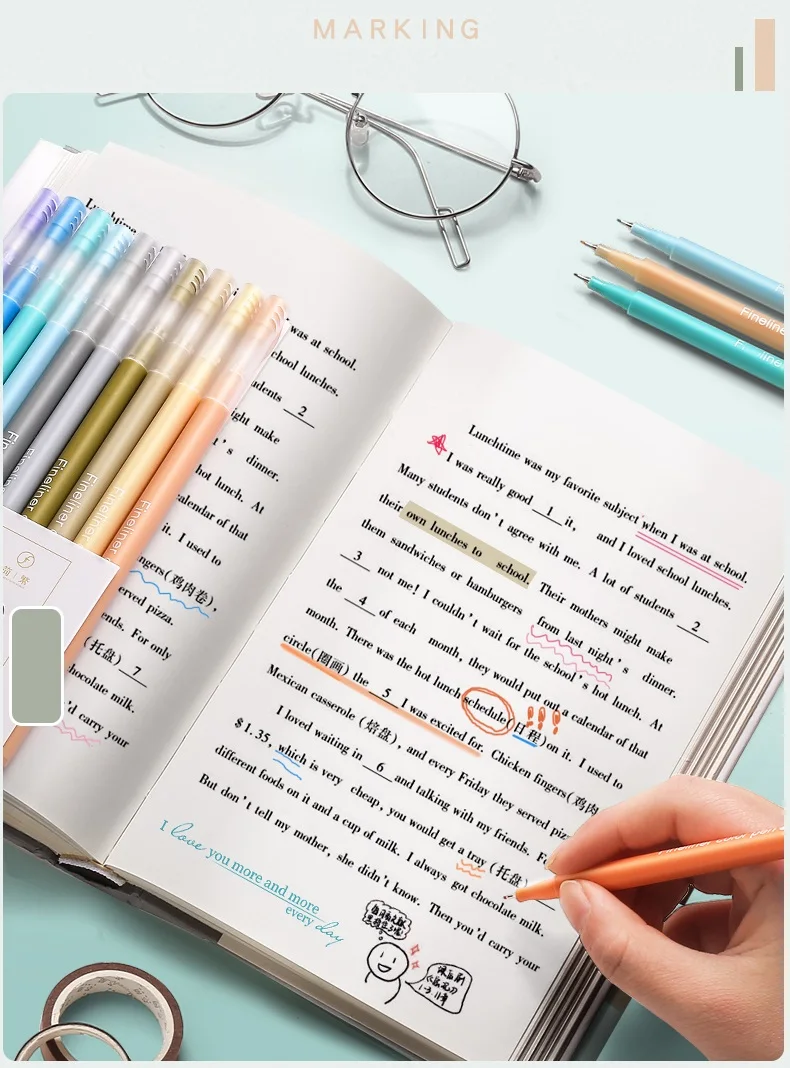 MARKING
Lunchtime
was at school.
school lunches.
students 2
might make
t's dinner.
hot lunch. At
calendar of that
it. I used to
fingers(鸡肉卷),
served pizza.
friends. For only
(托盘) 7
chocolate milk.
'd carry your
Fineliner
Fineliner
Fineliner
Fineliner
Lunchtime was my favorite subject when I was at school.
I was really good 1 it, and I loved school lunches.
Many students don't agree with me. A lot of students 2
their own lunches to school. Their mothers might make
them sandwiches or hamburgers from last night's dinner.
3 not me! I couldn't wait for the school's hot lunch. At
the 4 of each month, they would put out a calendar of that
month. There was the hot lunch schedule(日程)on it. I used to
circle(圈画) the 5 I was excited for. Chicken fingers(鸡肉
Mexican casserole (焙盘), and every Friday they served piz
I loved waiting in 6 and talking with my friends. Fo
$1.35, which is very cheap, you would get a tray (托盘)
different foods on it and a cup of milk. I always got chocolate milk.
But don't tell my mother, she didn't know. Then you'd carry your
I love you more and more
every day